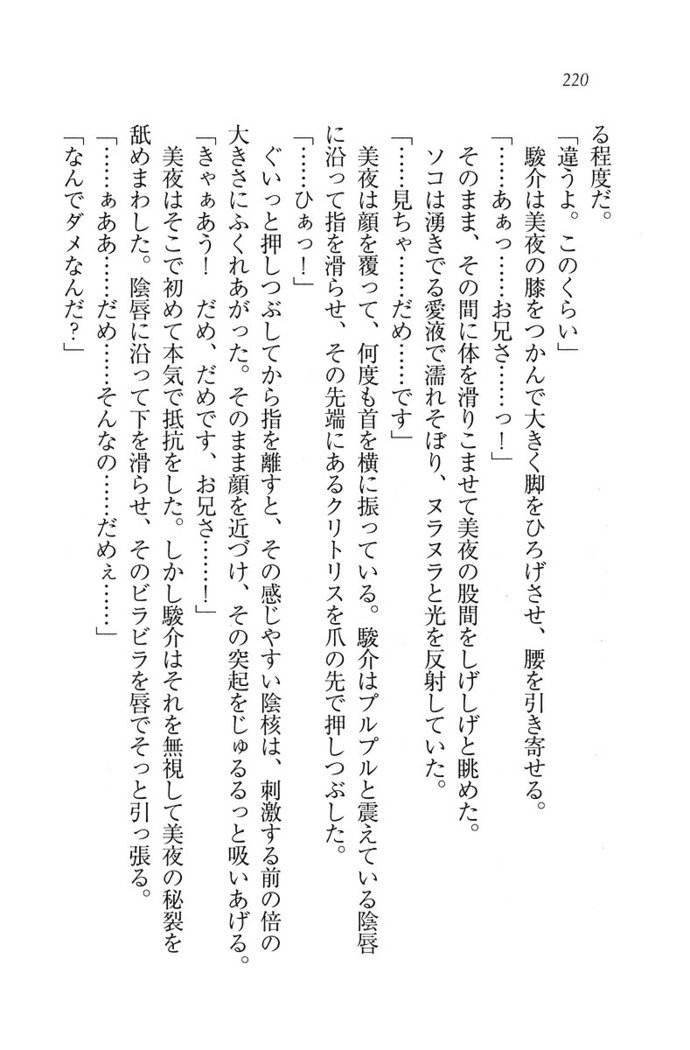 220
る程度だ。
「違うよ。このくらい」
駿介は美夜の膝をつかんで大きく脚をひろげさせ、腰を引き寄せる。
「……あぁっ……お兄さ……っ！」
そのまま、その間に体を滑りこませて美夜の股間をしげしげと眺めた。
ソコは湧きでる愛液で濡れそぼり、ヌラヌラと光を反射していた。
「……見ちゃ……だめ……です」
美夜は顔を覆って、何度も首を横に振っている。駿介はプルプルと震えている陰唇
に沿って指を滑らせ、その先端にあるクリトリスを爪の先で押しつぶした。
「……ひぁっ！」
ぐいっと押しつぶしてから指を離すと、その感じやすい陰核は、刺激する前の倍の
大きさにふくれあがった。そのまま顔を近づけ、その突起をじゅるるっと吸いあげる。
「きゃぁあう！　だめ、だめです、お兄さ……！」
美夜はそこで初めて本気で抵抗をした。しかし駿介はそれを無視して美夜の秘裂を
舐めまわした。陰唇に沿って下を滑らせ、そのビラビラを唇でそっと引っ張る。
「……ぁああ……だめ……そんなの……だめぇ……」
「なんでダメなんだ？」